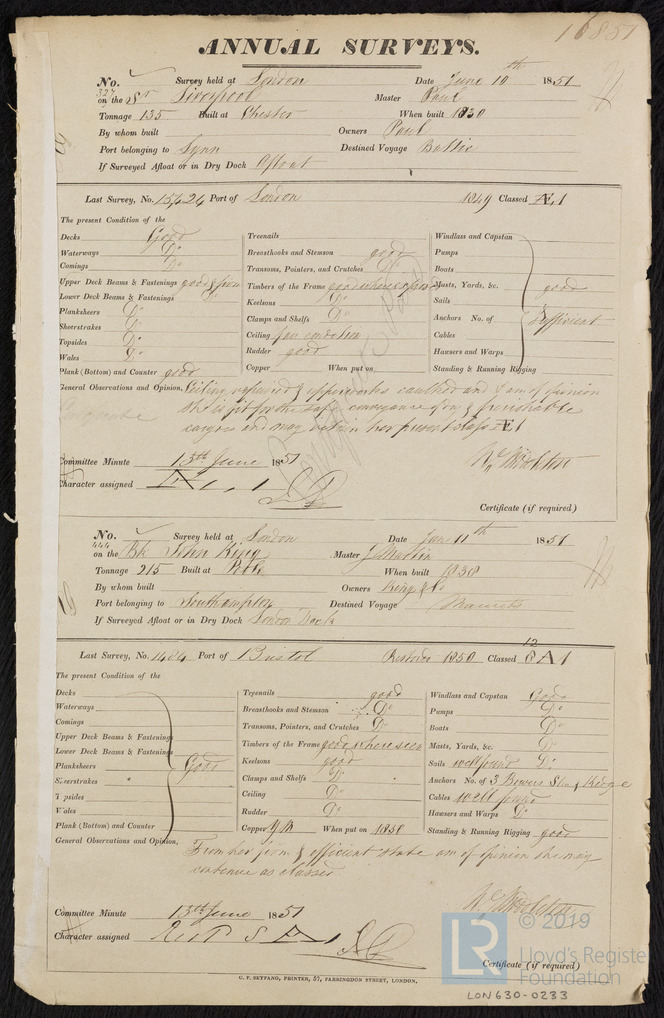 16851
ANNUAL SURVEYS.
No. Survey held at London Date June 10th 1851
327 on the Sr Liverpool Master Paul
Tonnage 135 Built at Chester When built 1830
By whom built Owners Paul
Port belonging to Lynn Destined Voyage Baltic
If Surveyed Afloat or in Dry Dock Afloat
Last Survey, No. 15,424 Port of London 1849 Classed Æ1
The present Condition of the
Decks Good
Waterways Do
Comings Do
Upper Deck Beams & Fastenings good & firm
Lower Deck Beams & Fastenings Do
Planksheers Do
Sheerstrakes Do
Topsides Do
Wales Do
Plank (Bottom) and Counter good
Treenails
Breasthooks and Stemson good
Transoms, Pointers, and Crutches Do
Timbers of the Frame good where exposed
Keelsons Do
Clamps and Shelfs Do
Ceiling fair condition
Rudder good
Copper When put on
Windlass and Capstan
Pumps
Boats
Masts, Yards, &c. good
Sails
Anchors No. of Sufficient
Cables
Hawsers and Warps
Standing & Running Rigging
General Observations and Opinion, Ceiling repaired & upperworks caulked and I am of opinion
she is fit for the safe conveyance of dry & perishable
cargoes and may retain her present class Æ1
Committee Minute 13th June 1851
Character assigned Æ 1
Certificate (if required)
No. Survey held at London Date June 11th 1851
444 on the Bk John King Master J Martin
Tonnage 215 Built at Poole When built 1838
By whom built Owners King & Co
Port belonging to Southampton Destined Voyage Mauritius
If Surveyed Afloat or in Dry Dock London Dock
Last Survey, No. 1484 Port of Bristol Restored 1850 Classed 12 8 A 1
The present Condition of the
Decks
Waterways
Comings
Upper Deck Beams & Fastenings
Lower Deck Beams & Fastenings
Planksheers Good
Sheerstrakes
Topsides
Wales
Plank (Bottom) and Counter
Treenails good
Breasthooks and Stemson Do
Transoms, Pointers, and Crutches Do
Timbers of the Frame good where seen
Keelsons good
Clamps and Shelfs Do
Ceiling Do
Rudder Do
Copper YM When put on 1850
Windlass and Capstan Good
Pumps Do
Boats Do
Masts, Yards, &c. Do
Sails well found Do
Anchors No. of 3 Bowers Stm & Kedge
Cables well found
Hawsers and Warps Do
Standing & Running Rigging good
General Observations and Opinion, From her firm & efficient state am of opinion she may
continue as classed
Committee Minute 13th June 1851
Character assigned Restd 8 A 1
Certificate (if required)
G. F. SETFANO, PRINTER, 57, FARRINGDON STREET, LONDON.
LR © 2019
Lloyd's Register
Foundation
LON630-0233